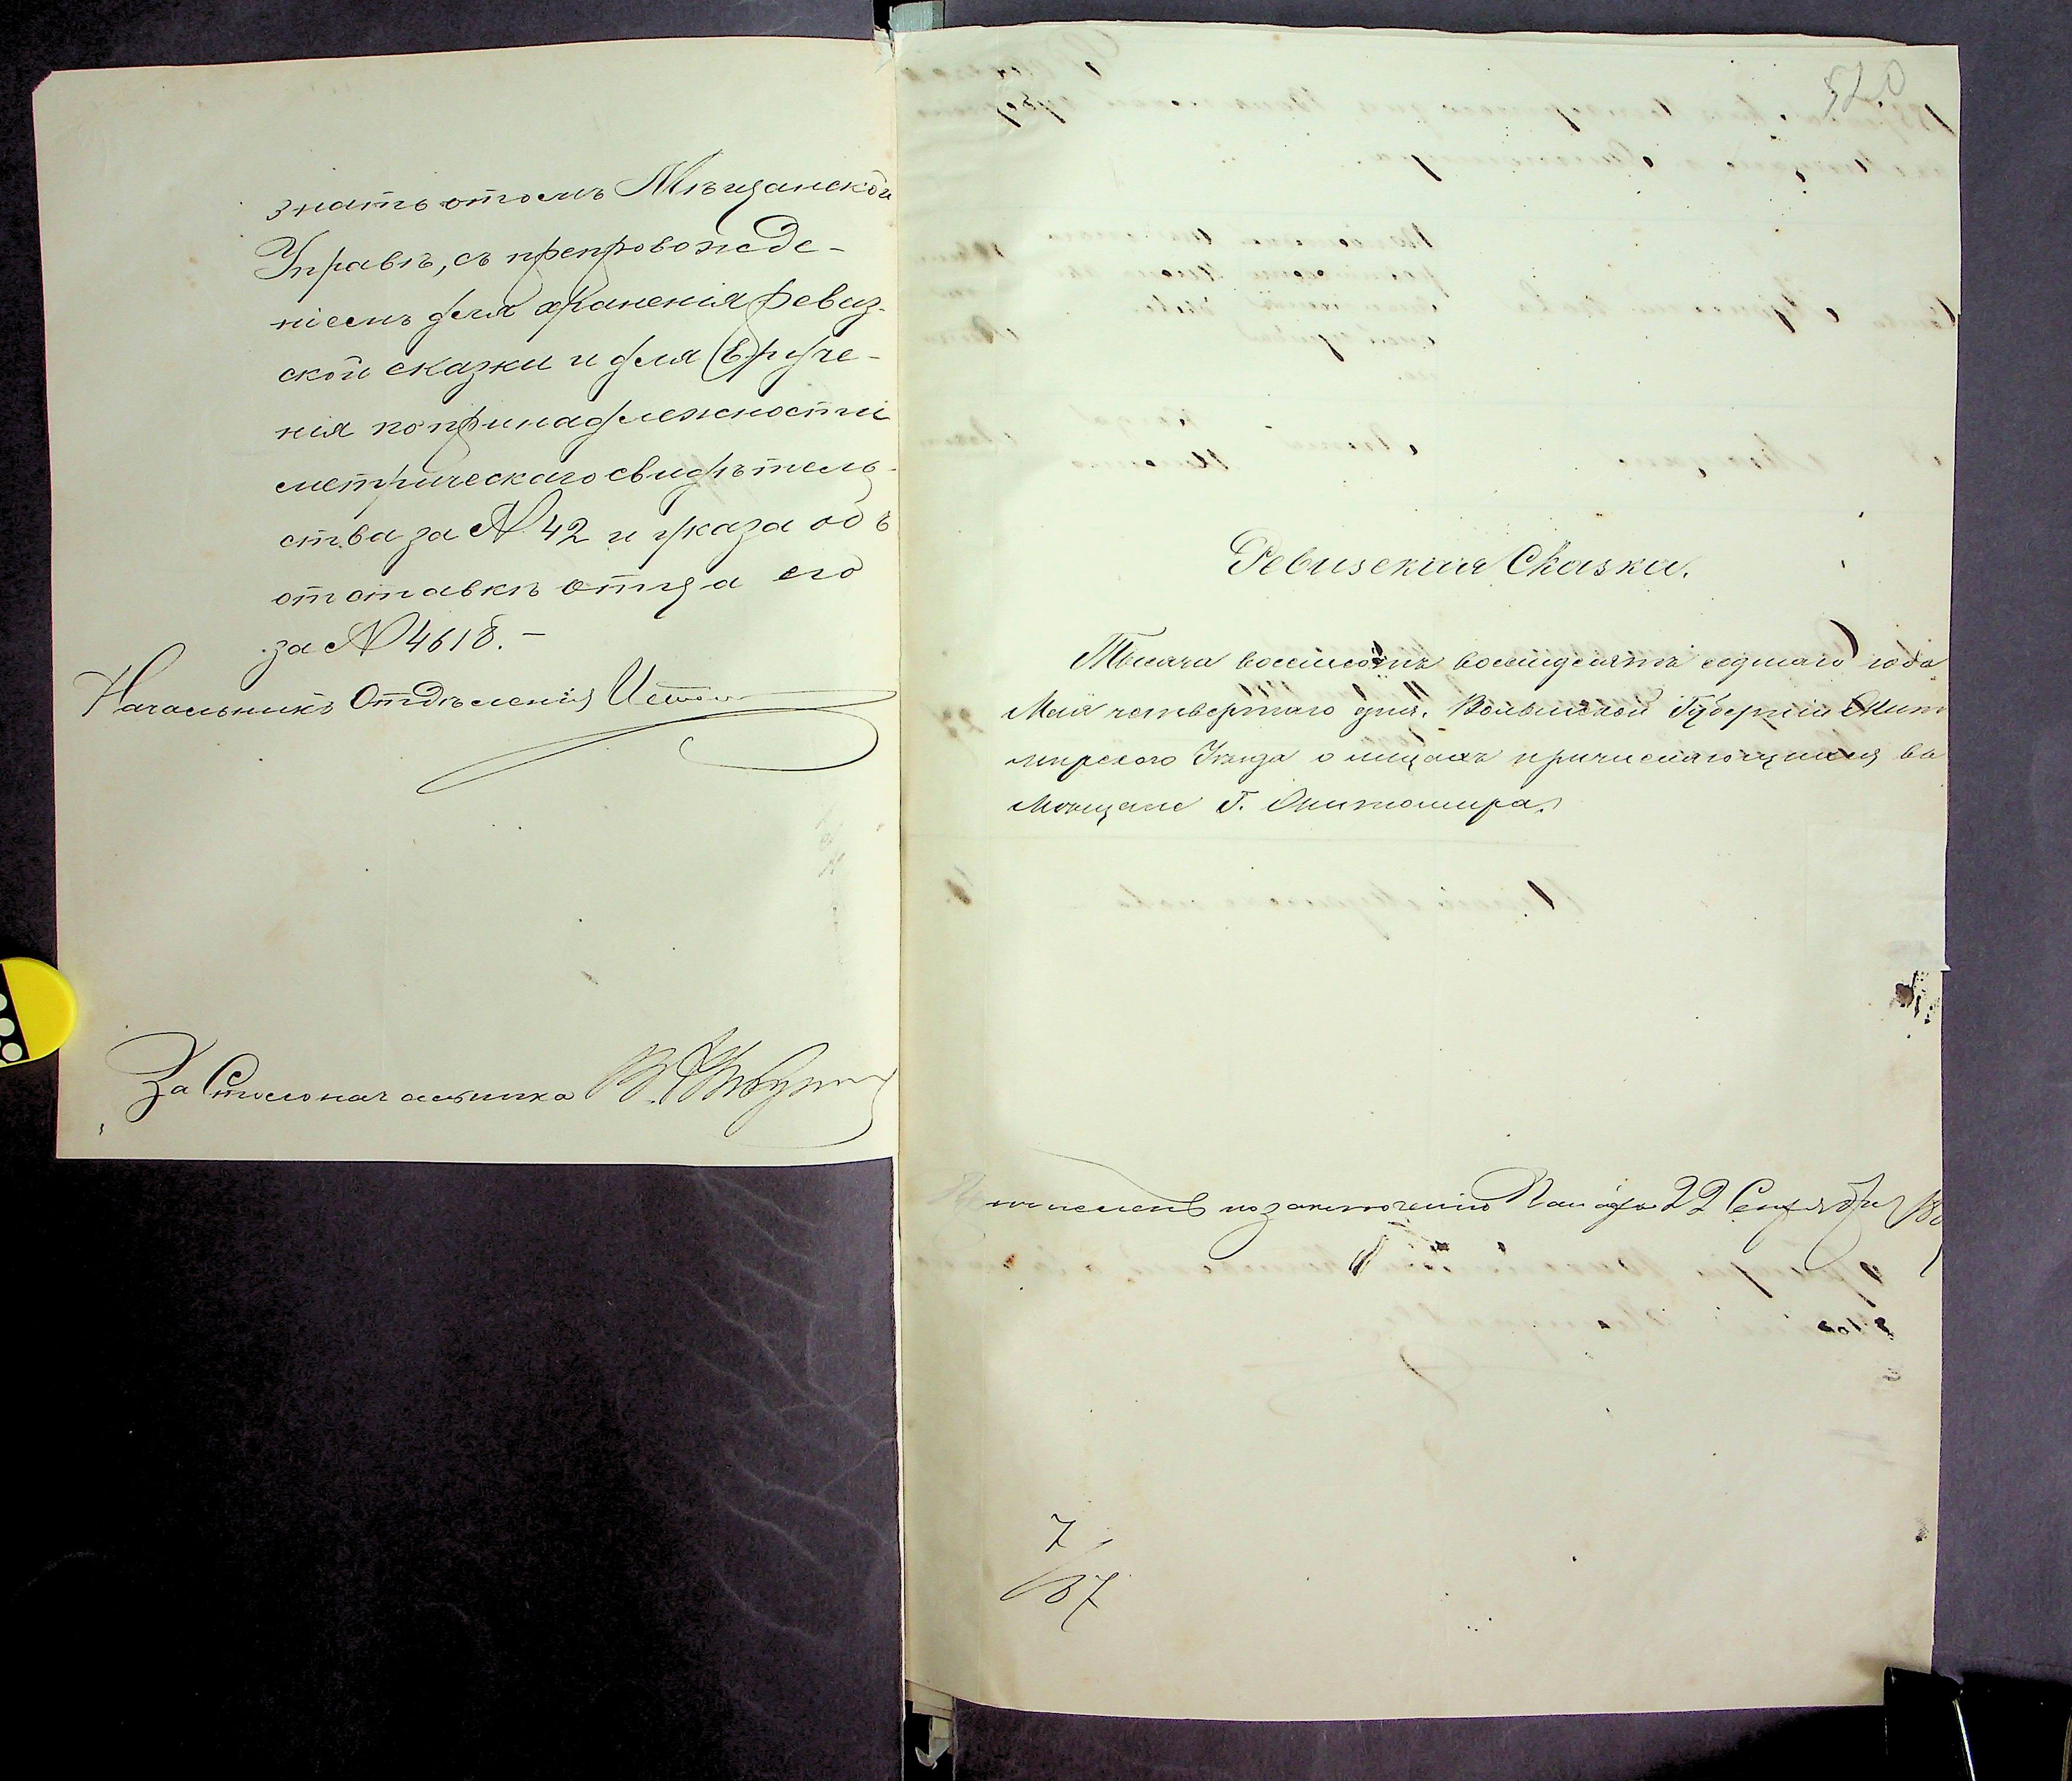 знать отомъ Мѣщанской
Управѣ, съ препровожде-
ніемъ для храненія ревиз-
ской сказки и для вруче-
нія попринадлежности
метрическаго свидѣтель-
ства за № 42 и указа объ
отставкѣ отца его
за № 4618. -
Начальникъ Отдѣленія
За Столоначальника
520
Ревизская Сказка.
Тысяча восемсотъ восмидесятъ седмаго года
Мая четвертаго дня. Волынской Губерніи Жит
мирскаго Уѣзда о лицахъ причисляющихся въ
Мѣщане Г. Житомира.
по заключенію Палаты 22 Сентября
7
/87